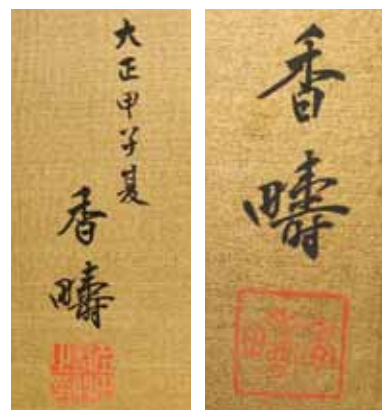 大正甲子夏
香疇
香疇